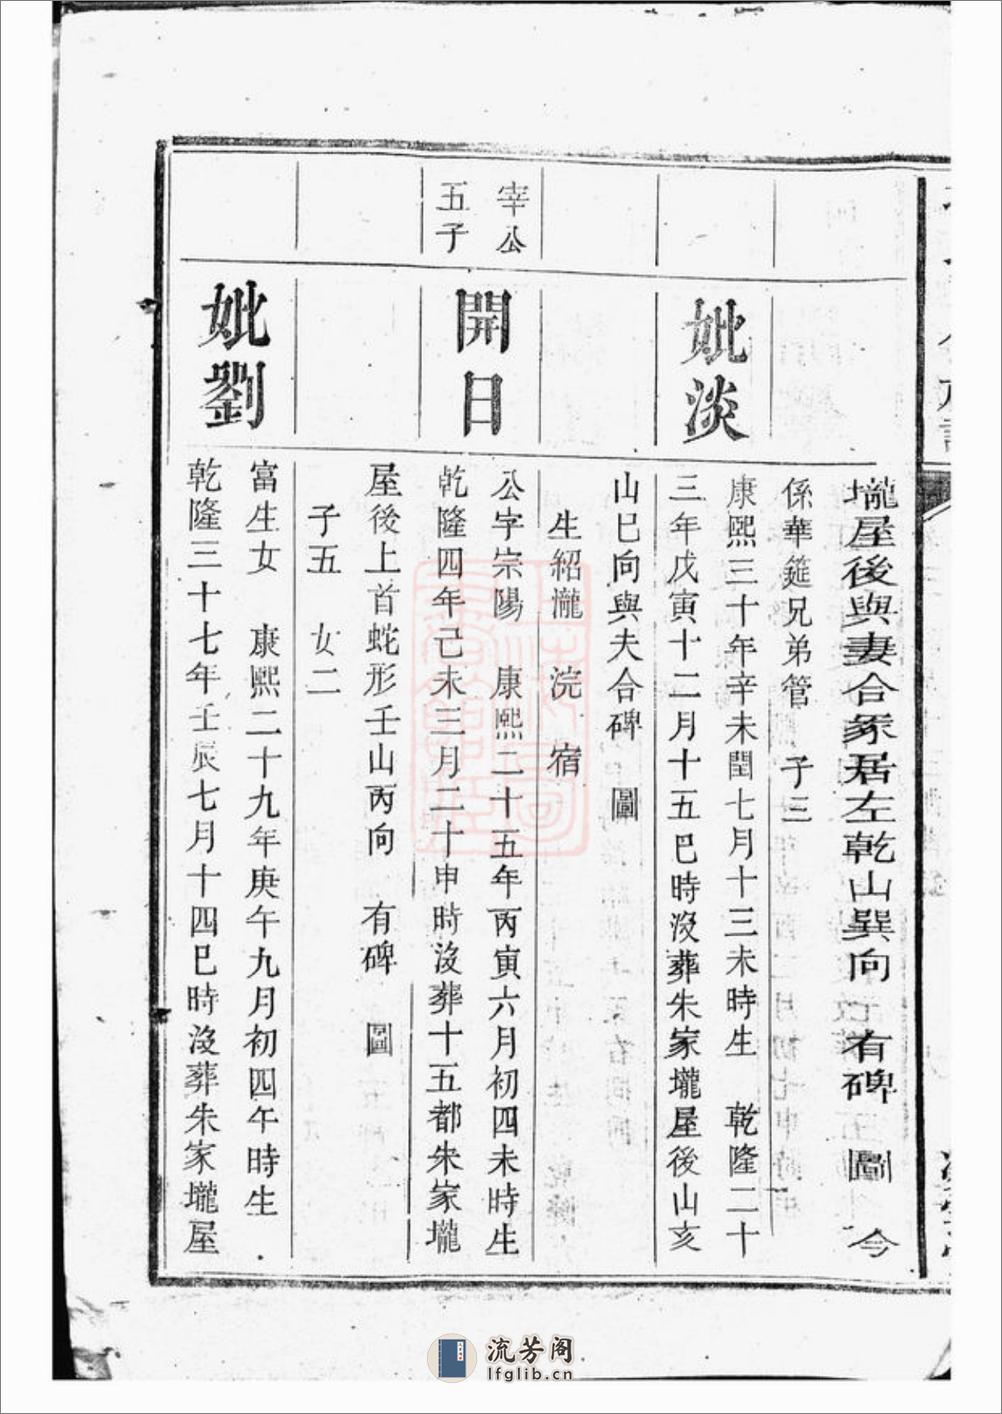 壠屋後與妻合冢居左乾山巽向 有碑 圖 今
係華筵兄弟管 子三
妣淡
康熙三十年辛未閏七月十三未時生 乾隆二十
三年戊寅十二月十五巳時沒葬朱家壠屋後山亥
山巳向與夫合碑 圖
生紹瀧 浣 宿
宰公
五子
開日
公字宗陽 康熙二十五年丙寅六月初四未時生
乾隆四年己未三月二十申時沒葬十五都朱家壠
屋後上首蛇形壬山丙向 有碑 圖
子五 女二
妣劉
富生女 康熙二十九年庚午九月初四午時生
乾隆三十七年壬辰七月十四巳時沒葬朱家壠屋
流芳阁
lfglib.cn